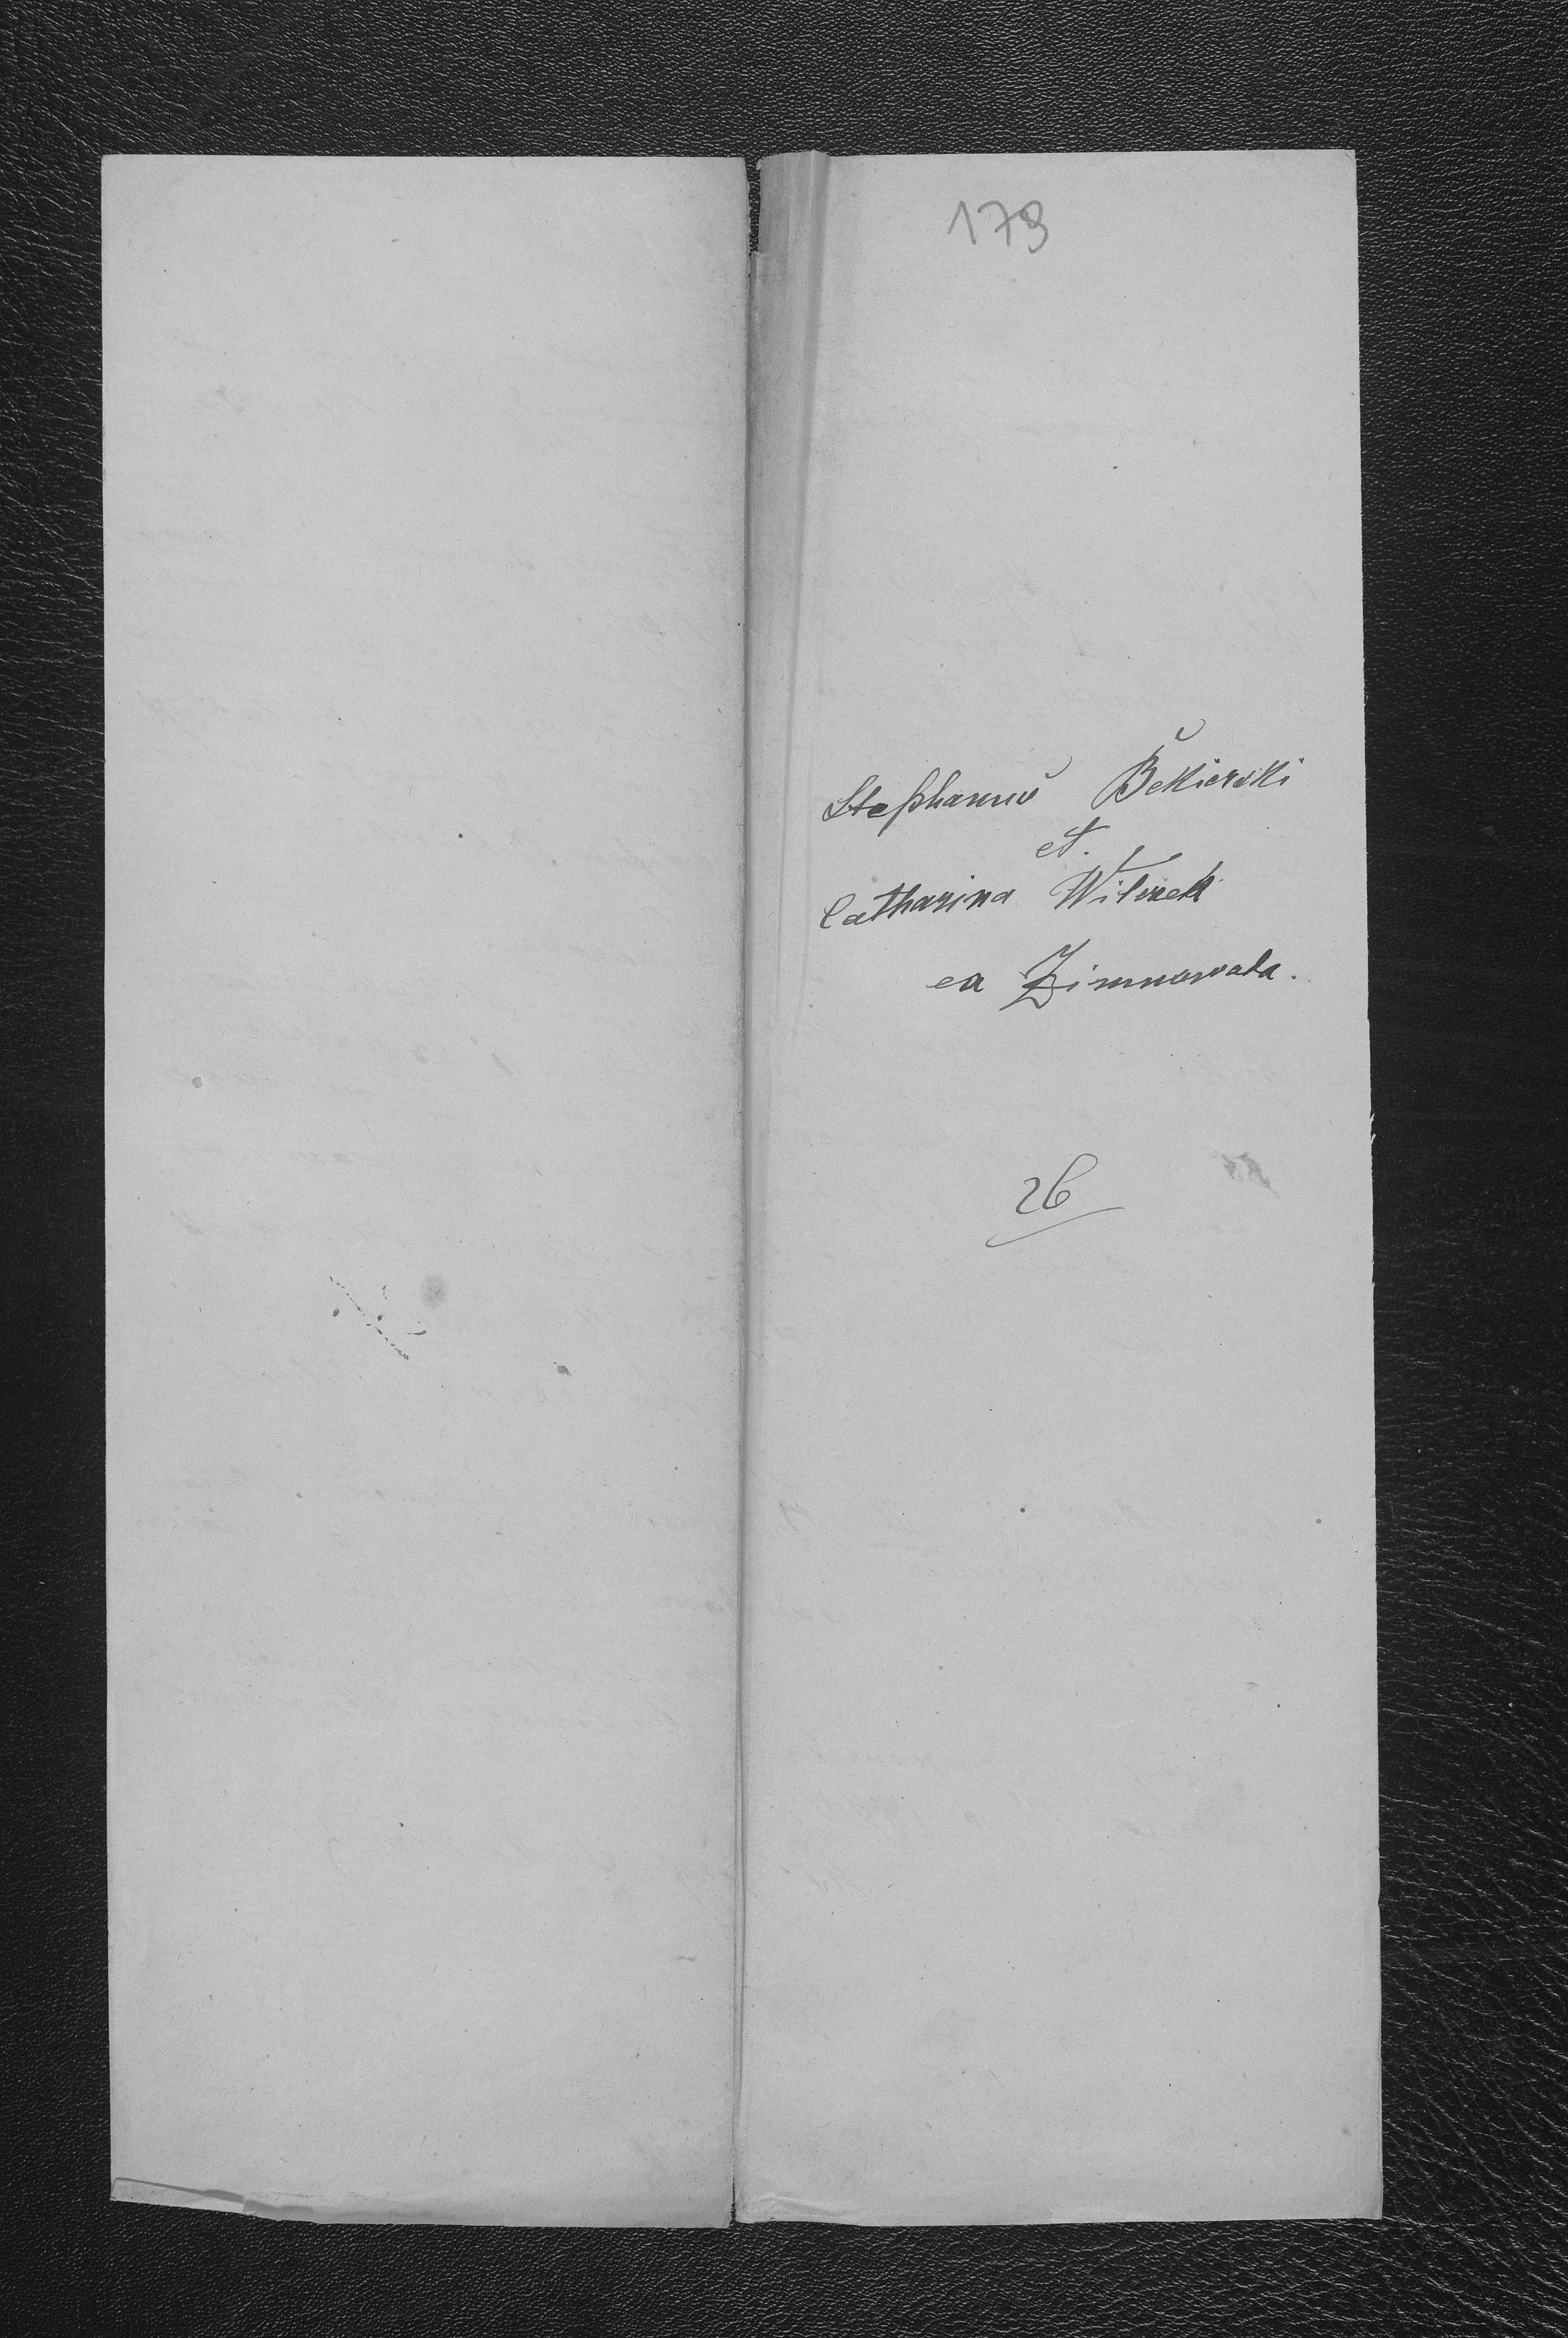 179
Stephanus Bekierski
et.
Catharina Wilczek
ea Zimnawoda.
26